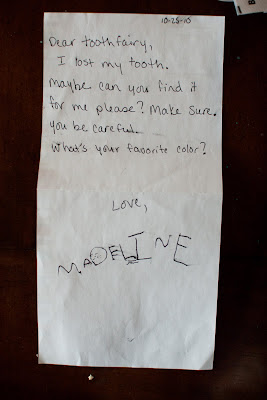 10-25-10
Dear toothfairy,
I lost my tooth.
Maybe can you find it
for me please? Make sure.
you be careful.
What's your favorite color?
Love,
MADELINE